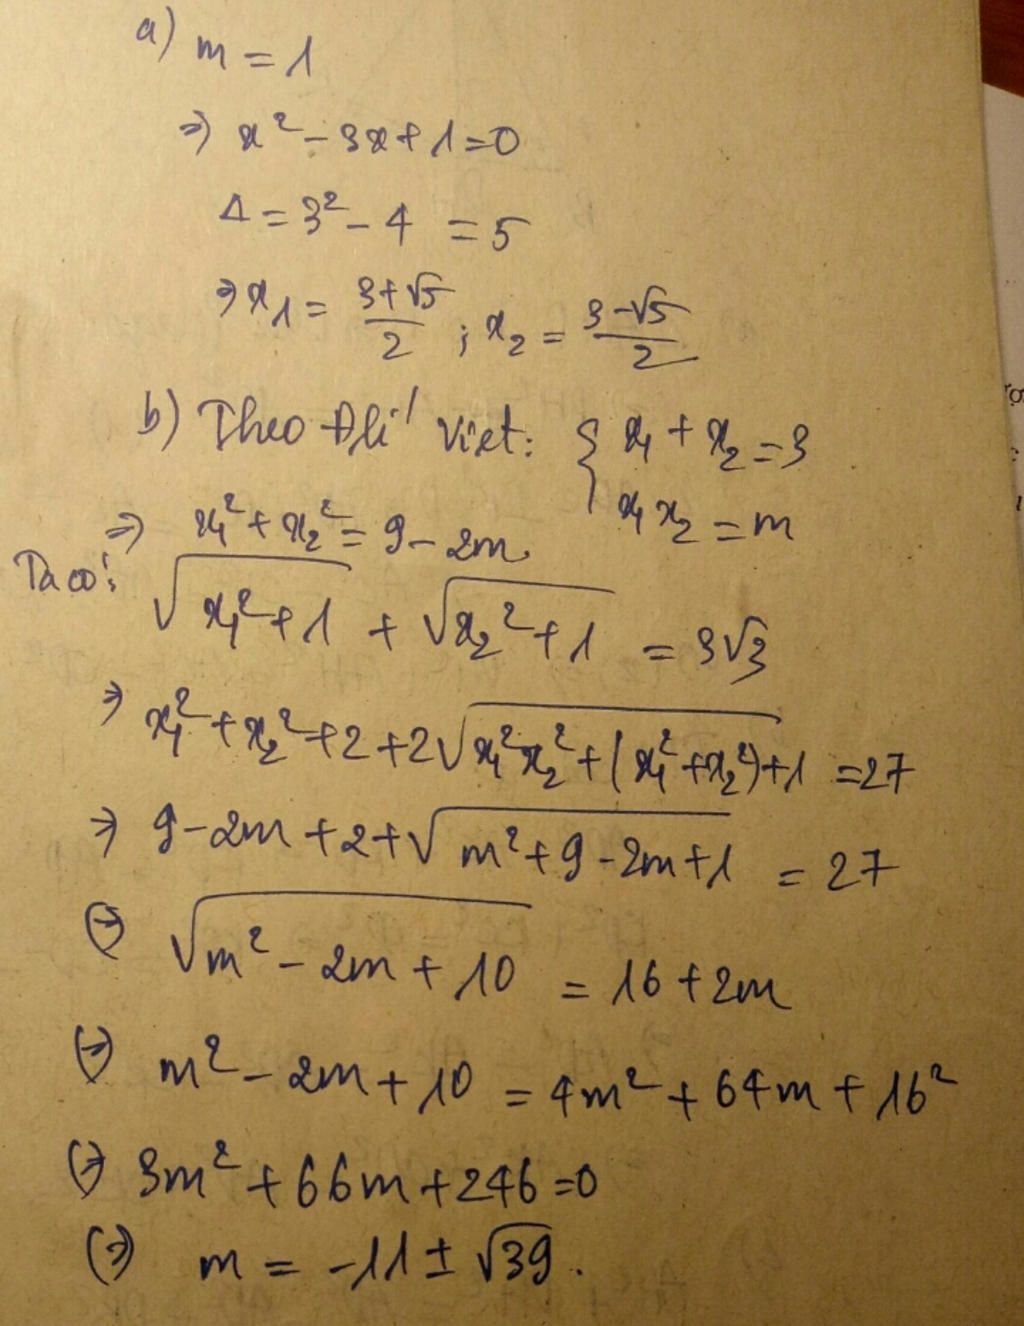 a) m = 1
⇒ x² - 3x + 1 = 0
Δ = 3² - 4 = 5
⇒ x₁ = (3+√5)/2 ; x₂ = (3-√5)/2
b) Theo Đlí Viet: { x₁ + x₂ = 3
x₁x₂ = m
⇒ x₁² + x₂² = 9 - 2m
Ta có: √(x₁² + 1) + √(x₂² + 1) = 3√3
⇒ x₁² + x₂² + 2 + 2√(x₁²x₂² + (x₁² + x₂²) + 1) = 27
⇒ 9 - 2m + 2 + √(m² + 9 - 2m + 1) = 27
(⇒) √(m² - 2m + 10) = 16 + 2m
(⇒) m² - 2m + 10 = 4m² + 64m + 16²
(⇒) 3m² + 66m + 246 = 0
(⇒) m = -11 ± √39.